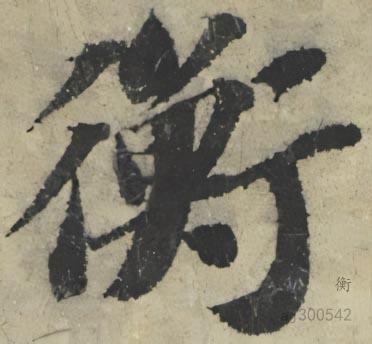 衡
衡
ag300542